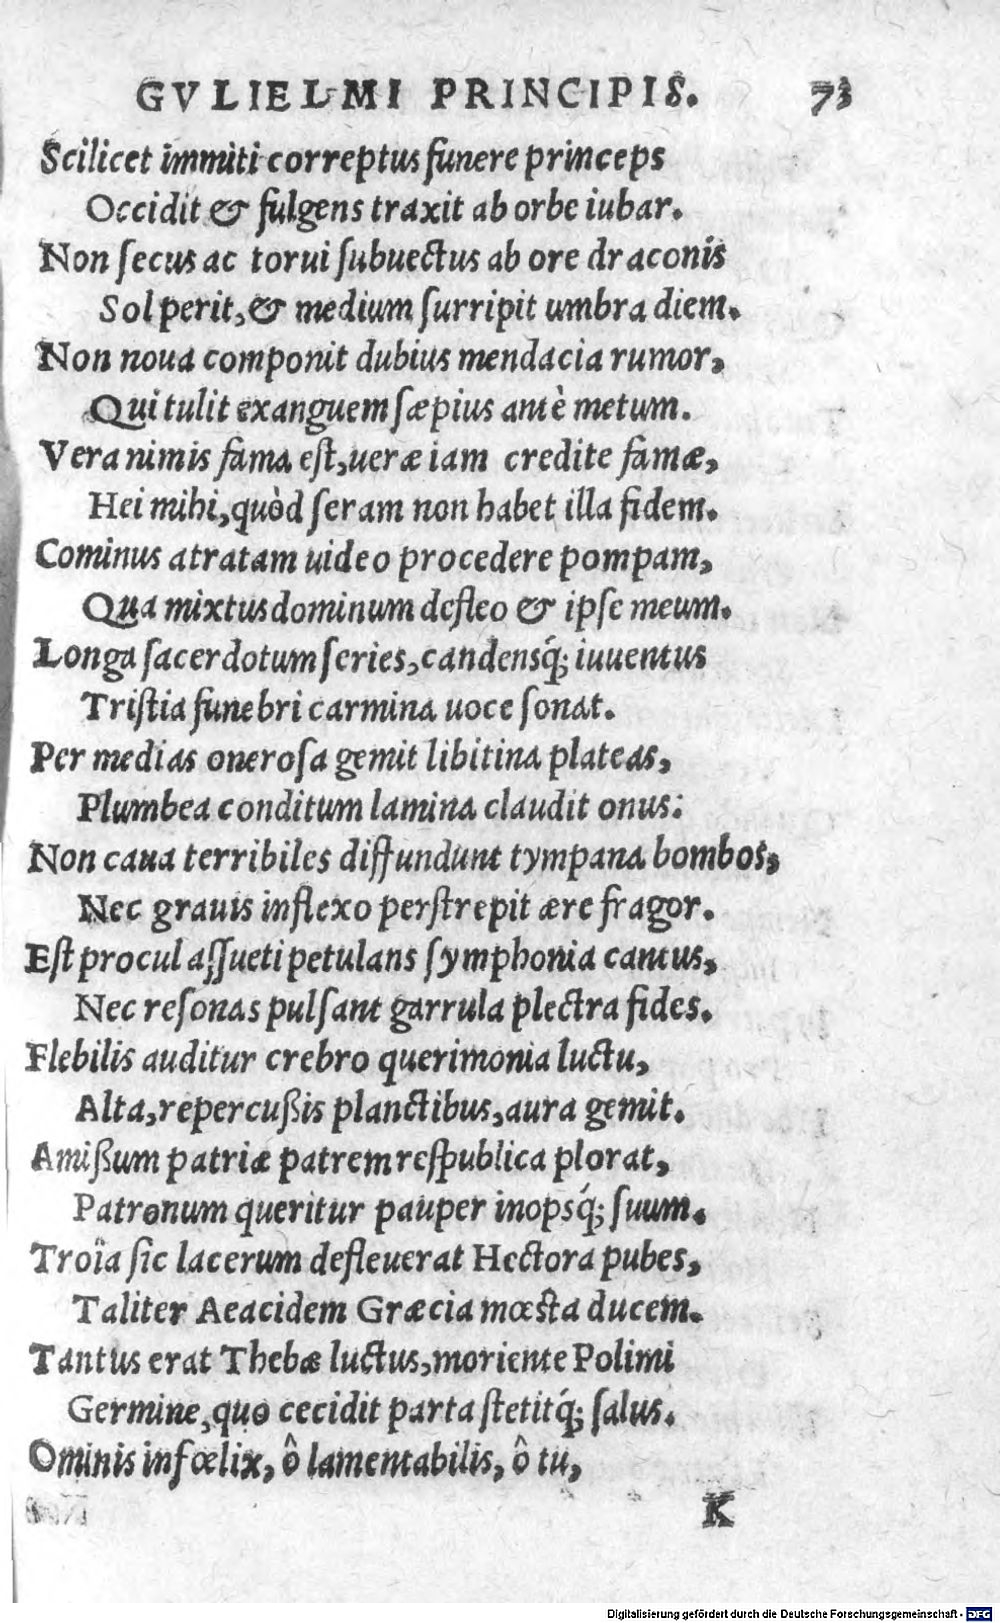 GVLIELMI PRINCIPIS. 73
Scilicet immiti correptus funere princeps
Occidit & fulgens traxit ab orbe iubar.
Non ſecus ac torui ſubuectus ab ore draconis
Sol perit, & medium ſurripit umbra diem.
Non noua componit dubius mendacia rumor,
Qui tulit exanguem ſæpius antè metum.
Vera nimis fama eſt, ueræ iam credite famæ,
Hei mihi, quòd ſeram non habet illa fidem.
Cominus atratam uideo procedere pompam,
Qua mixtus dominum defleo & ipſe meum.
Longa ſacerdotum ſeries, candensq́; iuuentus
Triſtia funebri carmina uoce ſonat.
Per medias oneroſa gemit libitina plateas,
Plumbea conditum lamina claudit onus:
Non caua terribiles diffundunt tympana bombos,
Nec grauis inflexo perſtrepit ære fragor.
Eſt procul aſſueti petulans ſymphonia cantus,
Nec reſonas pulſant garrula plectra fides.
Flebilis auditur crebro querimonia luctu,
Alta, repercußis planctibus, aura gemit.
Amißum patriæ patrem reſpublica plorat,
Patronum queritur pauper inopsq́; ſuum.
Troïa ſic lacerum defleuerat Hectora pubes,
Taliter Aeacidem Græcia mœſta ducem.
Tantus erat Thebæ luctus, moriente Polimi
Germine, quo cecidit parta ſtetitq́; ſalus.
Ominis infœlix, ô lamentabilis, ô tu,
K
Digitalisierung gefördert durch die Deutsche Forschungsgemeinschaft - DFG